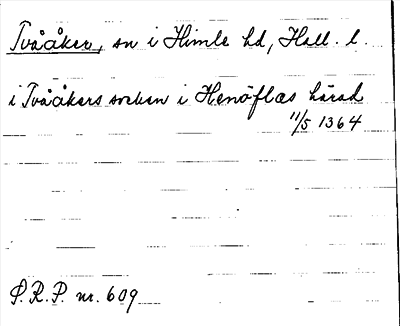 Tvååker, sn i Himle hd, Hall. l.
i Tvååkers socken i Henöflæs härad
11/5 1364
S.R.P. nr. 609